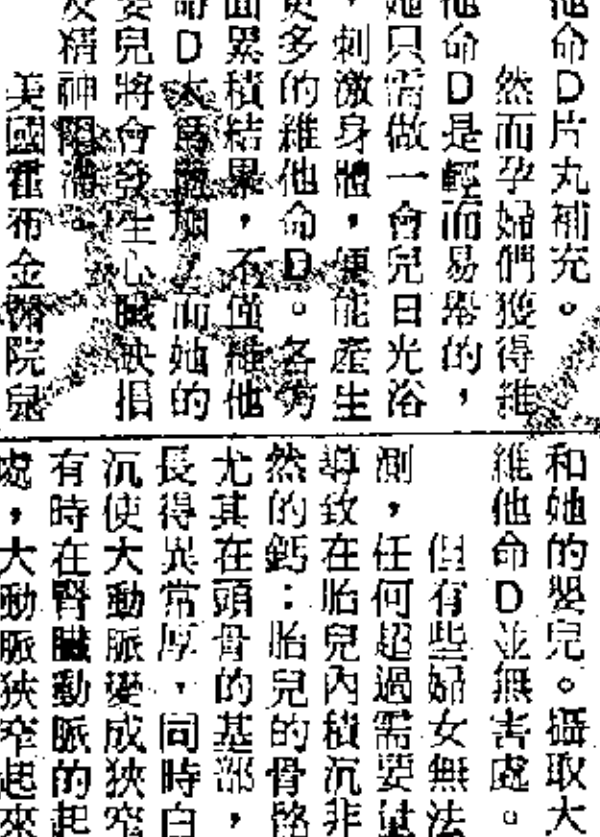 他命D片丸補充。
然而孕婦們獲得維
他命D是輕而易舉的，
她只需做一會兒日光浴
，刺激身體，便能產生
更多的維他命D。各方
面累積結果，不僅維他
命D大為加，而她的
嬰兒將會發生心臟缺損
及精神阻滯。
美國霍布金醫院兒
和她的嬰兒。攝取大
維他命D並無害處。
但有些婦女無法
測，任何超過需要量
導致在胎兒內積沉非
然的鈣：胎兒的骨骼
尤其在頭骨的基部，
長得異常厚，同時白
沉使大動脈變成狹窄
有時在腎臟動脈的起
處，大動脈狹窄起來